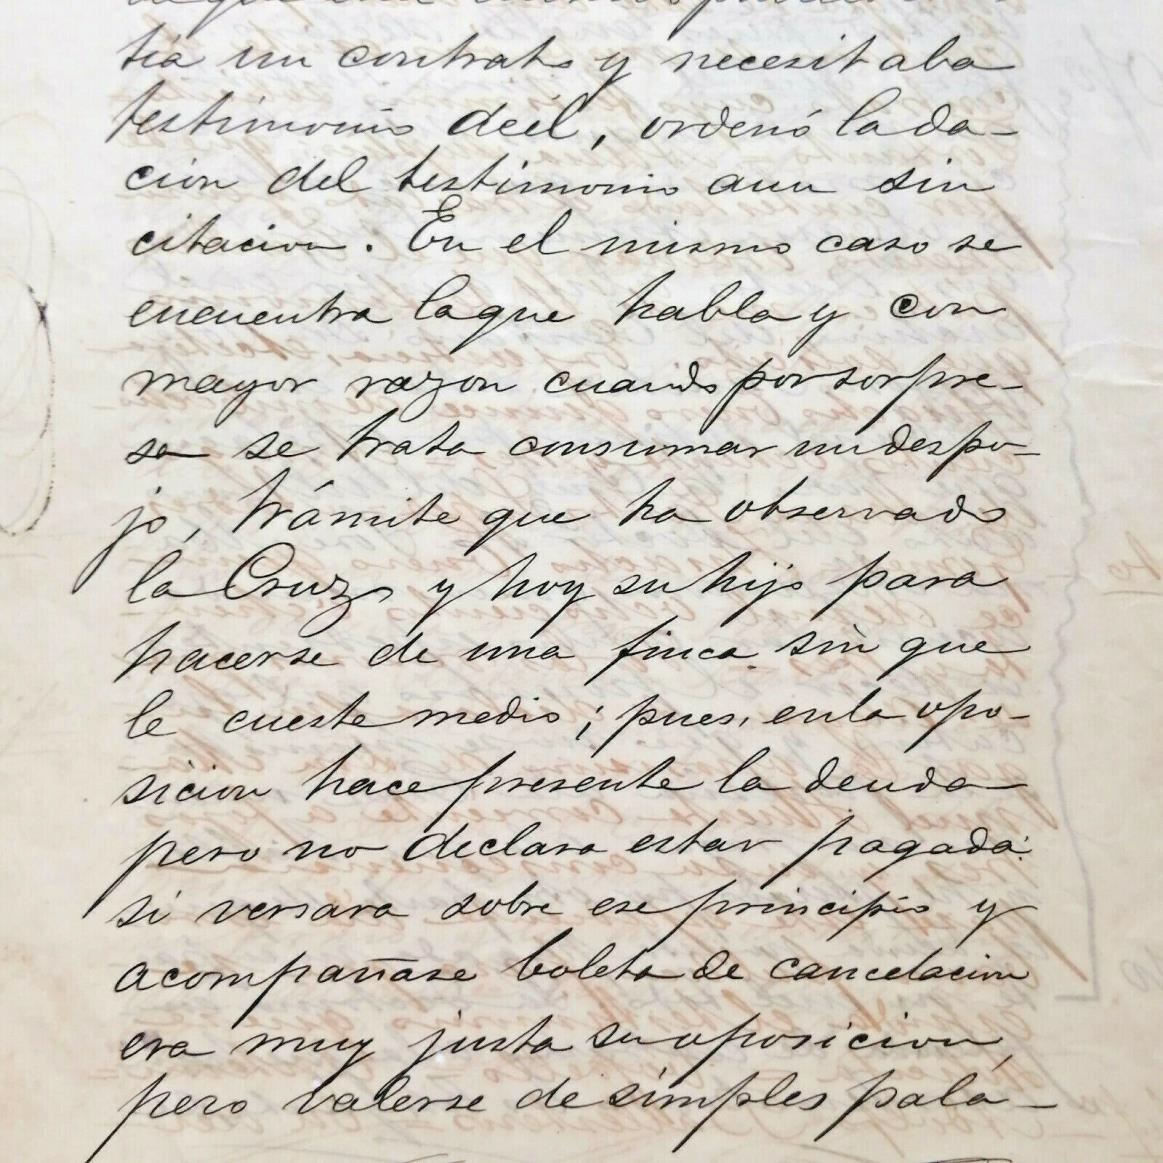 tia un contrato y necesitaba
testimonio deél, ordenó la da-
cion del testimonio aun sin
citacion. En el mismo caso se
encuentra laque habla y con
mayor razon cuando por sorpre-
sa se trata consumar un despo-
jo, trámite que ha observado
la Cruz, y hoy su hijo para
hacerse de una finca sin que
le cueste medio; pues, en la opo-
sicion hace presente la deuda
pero no declara estar pagada:
si versara sobre ese principio y
acompañase boleta de cancelacion
era muy justa su oposicion,
pero valerse de simples pala-